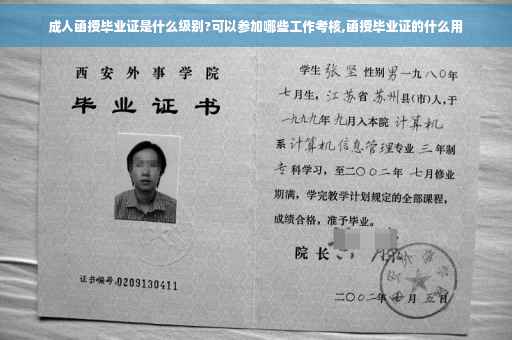 成人函授毕业证是什么级别?可以参加哪些工作考核,函授毕业证的什么用
西安外事学院
毕业证书
证书编号:0209130411
学生 张坚 性别 男 一九八〇年
七月生, 江苏省 苏州 县(市)人,于
一九九九年 九月入本院 计算机
系 计算机信息管理专业 三年制
专科学习,至二〇〇二年 七月修业
期满,学完教学计划规定的全部课程,
成绩合格,准予毕业。
院长
二〇〇二年 月五日